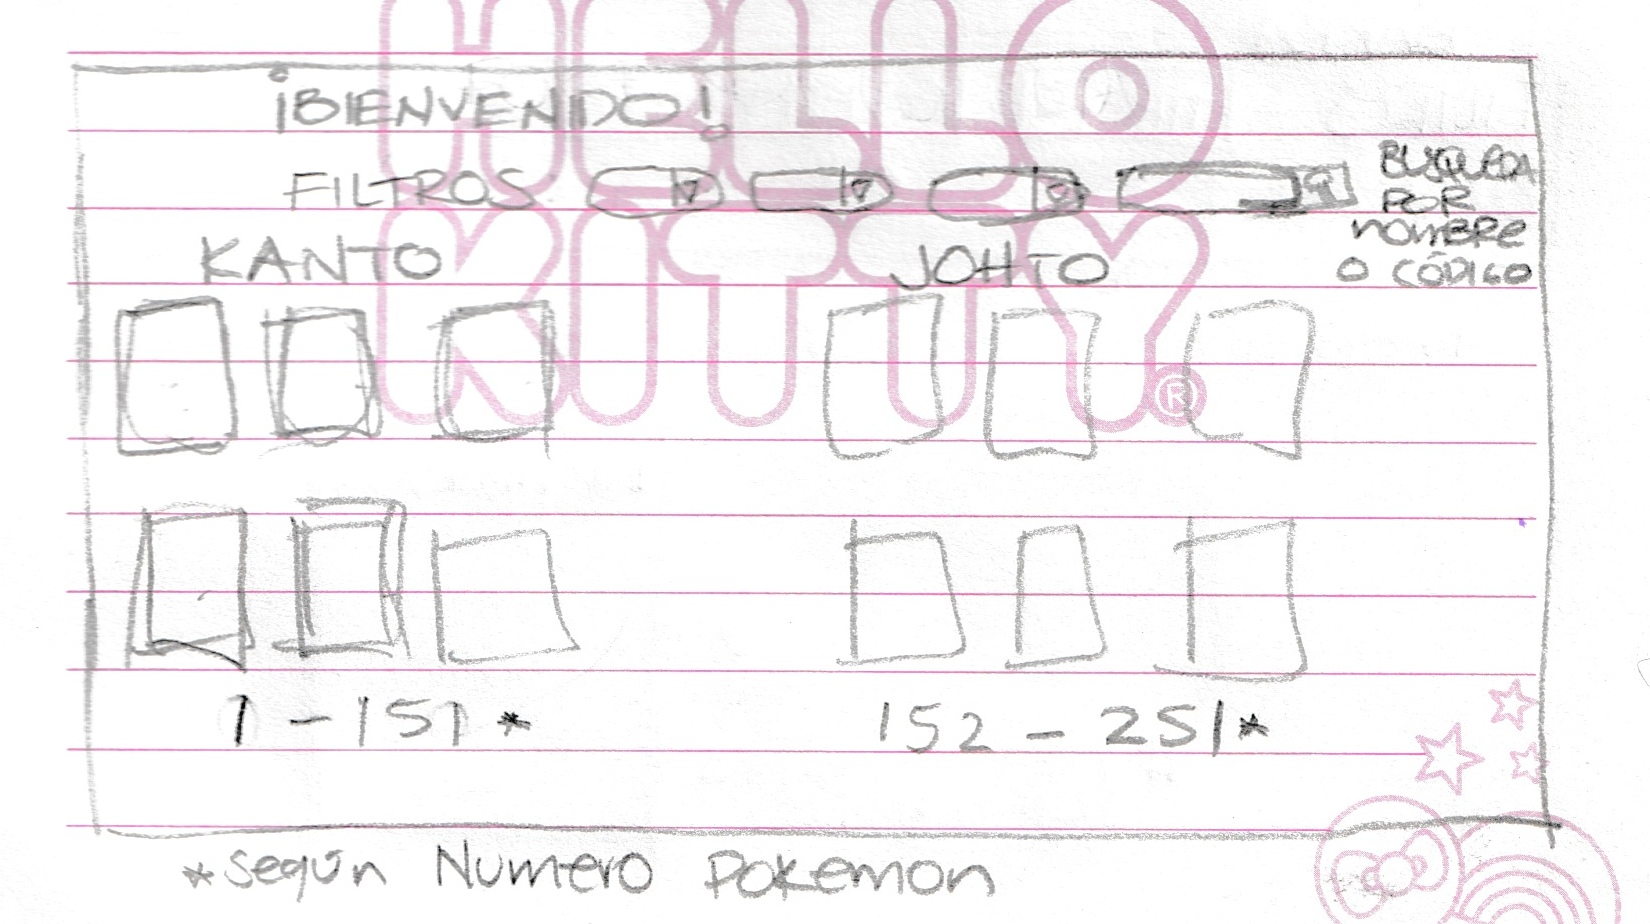 HELLO
KITTY®
¡BIENVENDO!
FILTROS
BUSQUEDA
POR
NOMBRE
O CÓDIGO
KANTO
JOHTO
1-151*
152-251*
*según Numero Pokemon